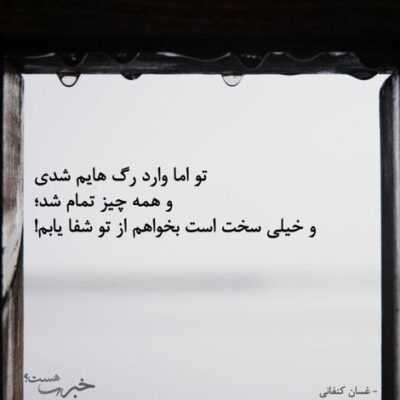 تو اما وارد رگ هایم شدی
و همه چیز تمام شد؛
و خیلی سخت است بخواهم از تو شفا یابم!
- غسان کنفانی
خبرت هست؟